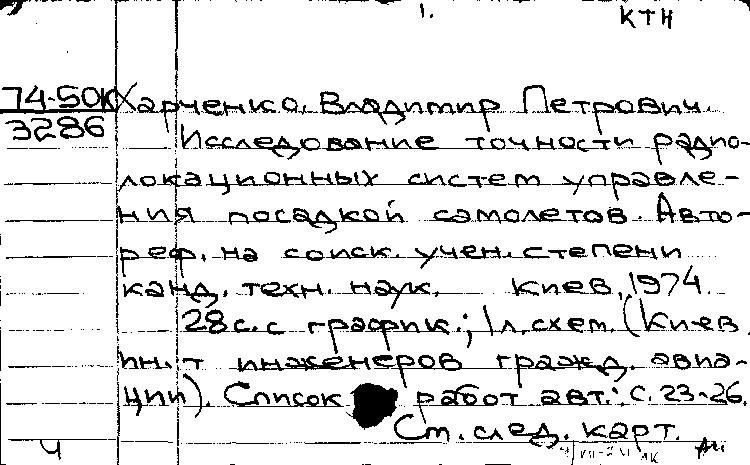 1.
КТН
74-50К Харченко, Владимир Петрович.
3286
Исследование точности радио-
локационных систем управле-
ния посадкой самолетов. Авто-
реф. на соиск. учен. степени
канд. техн. наук. Киев, 1974.
28 с. с график.; 1 л. схем. (Киев.
ин-т инженеров гражд. авиа-
ции). Список работ авт.: с. 23-26.
См. след. карт.
Ч